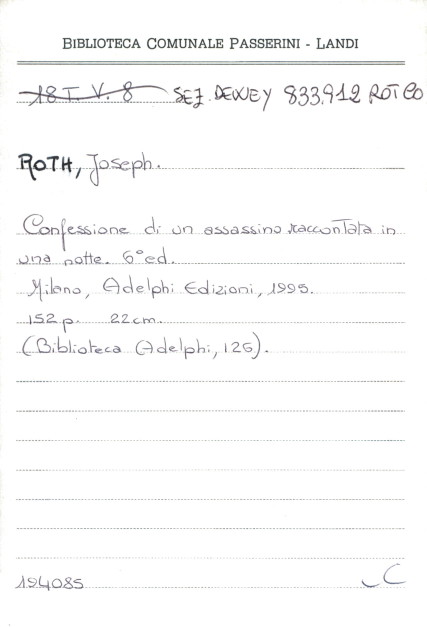 BIBLIOTECA COMUNALE PASSERINI - LANDI
18 T. V. 8 SEZ. DEWEY 833.912 ROT CO
ROTH, Joseph.
Confessione di un assassino raccontata in
una notte. 6° ed.
Milano, Adelphi Edizioni, 1995.
152 p. 22 cm.
(Biblioteca Adelphi, 126).
194085